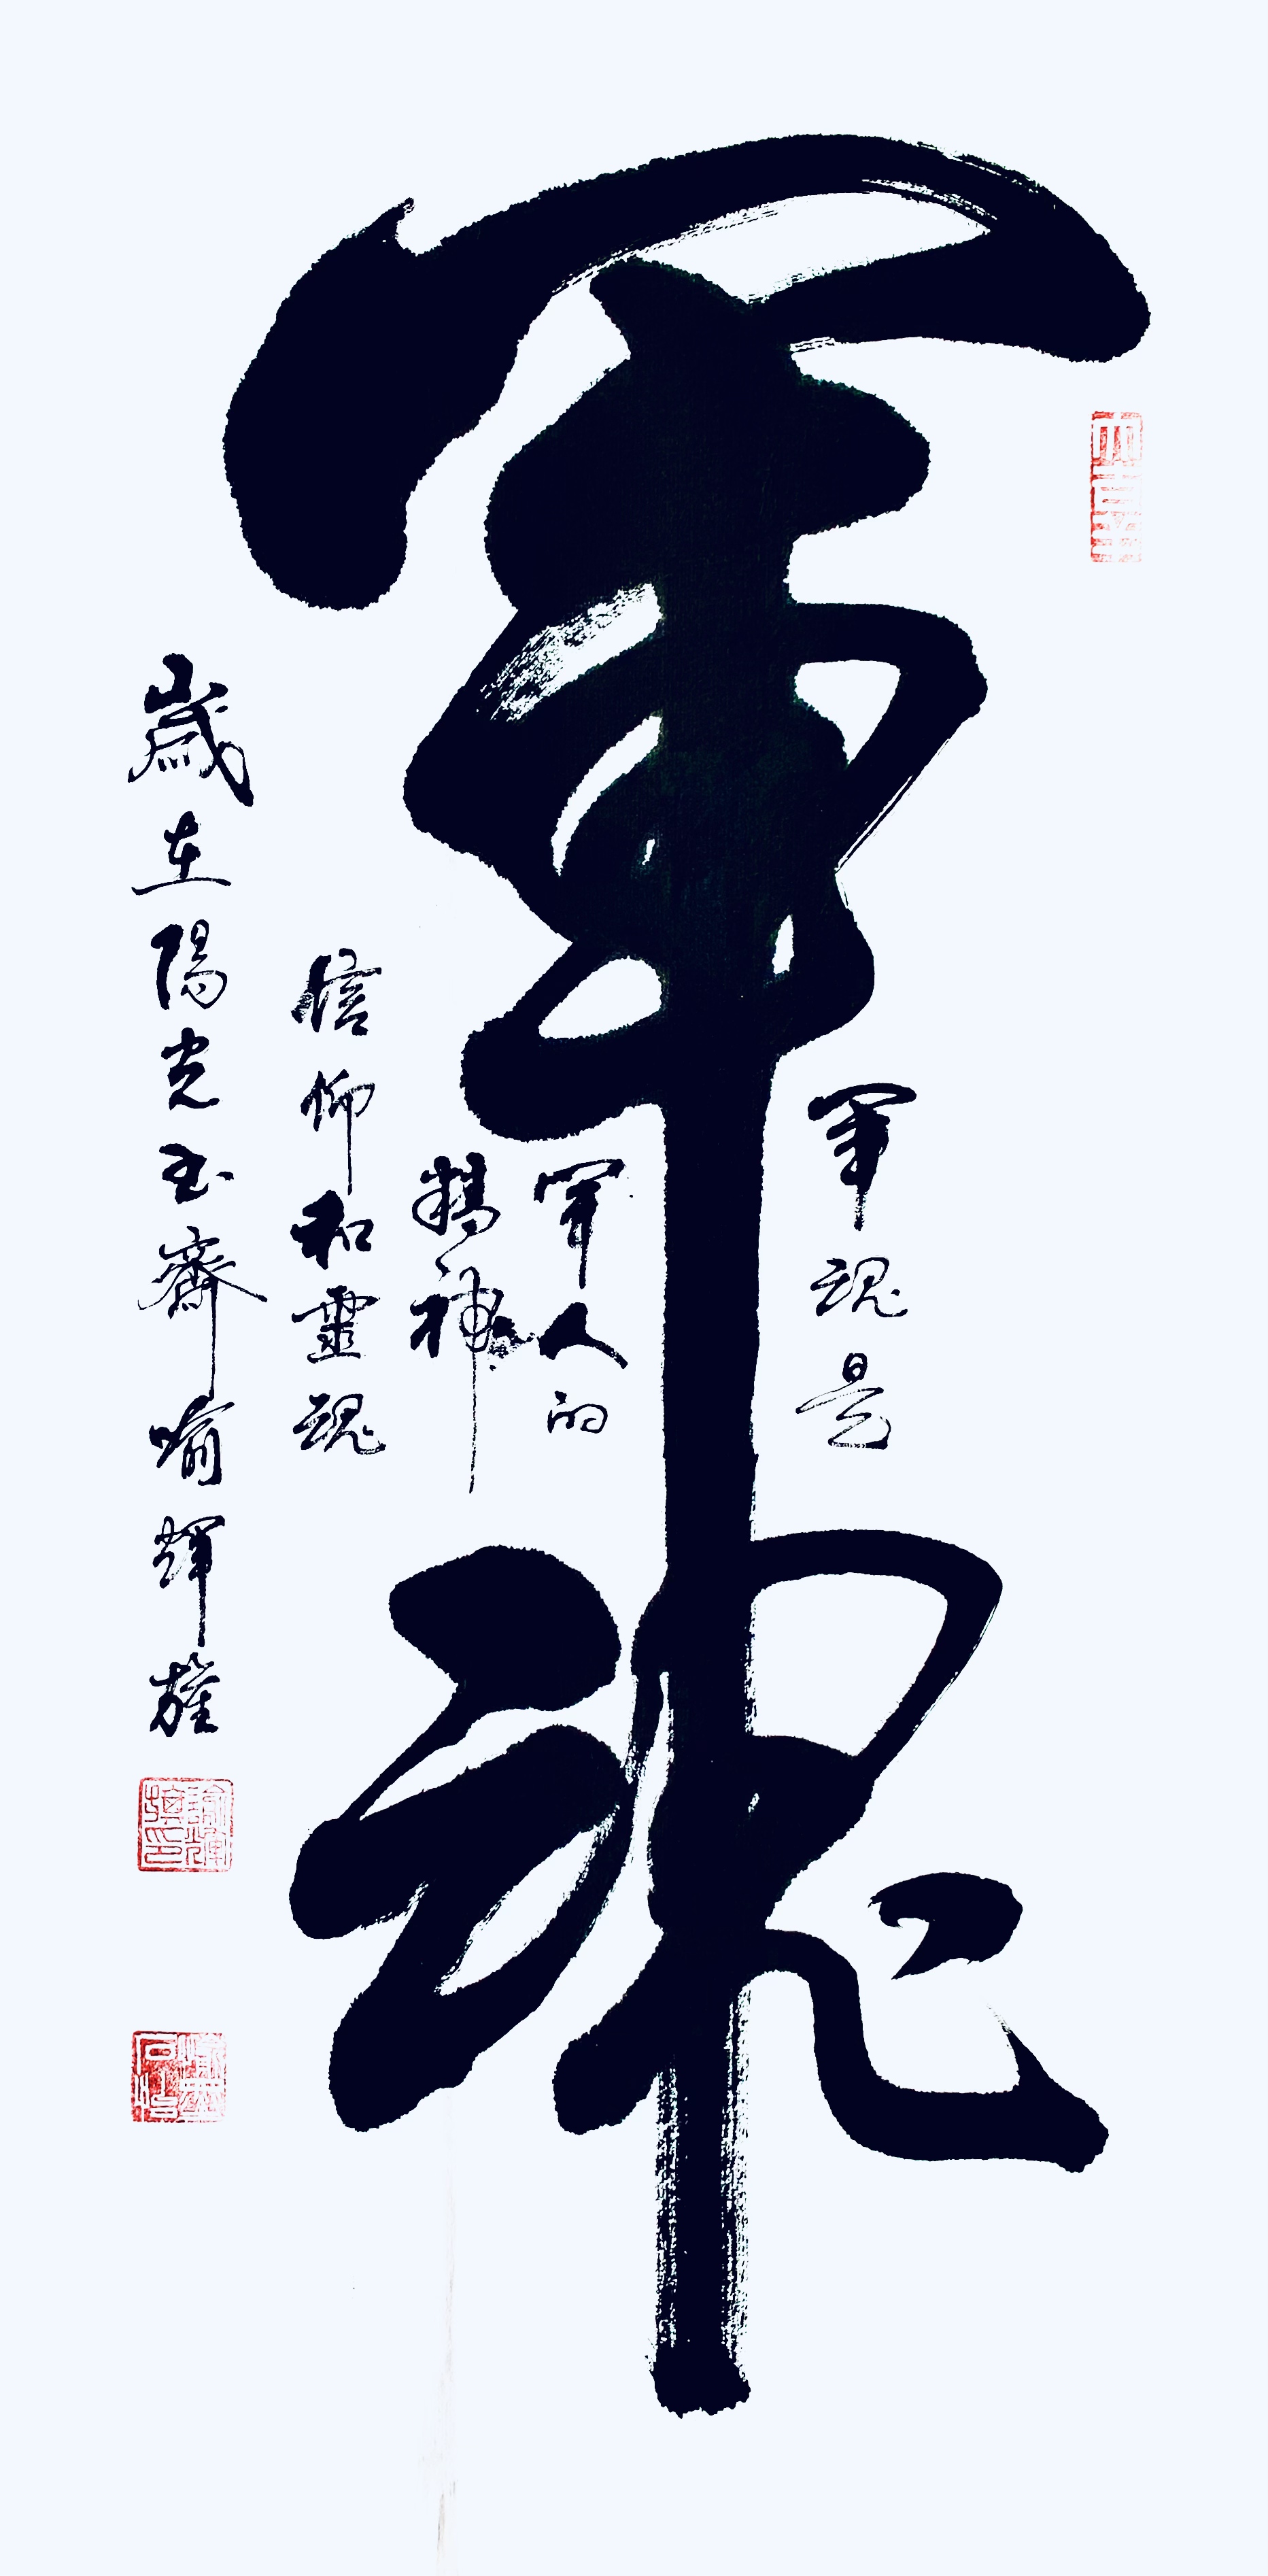 軍魂
軍魂是
軍人的
精神
信仰和靈魂
歲在陽光玉齋喻輝
大吉羊